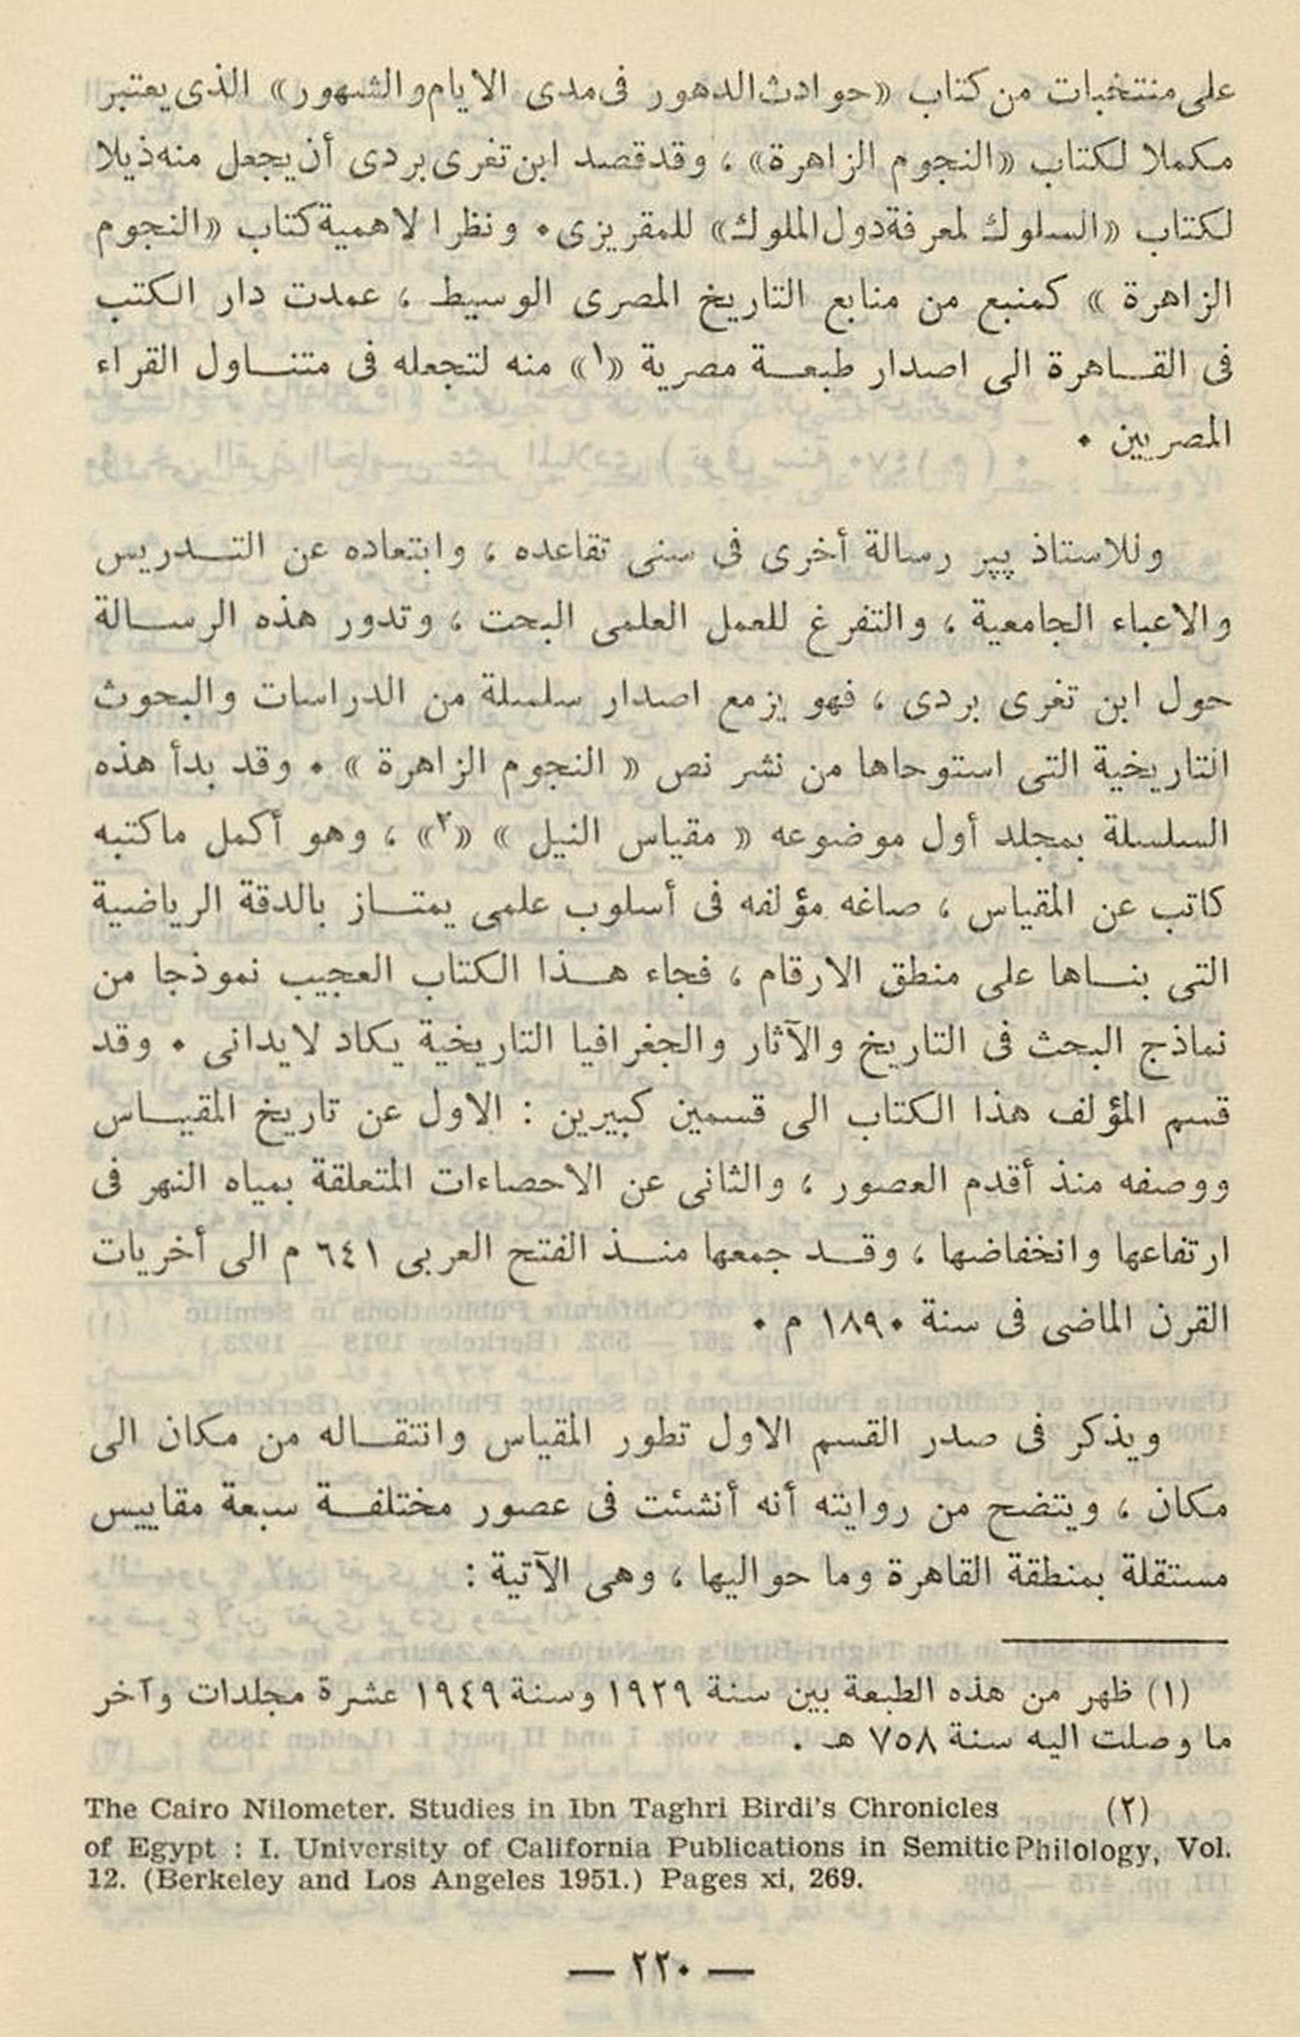 على منتخبات من كتاب «حوادث الدهور فى مدى الايام والشهور» الذى يعتبر
مكملا لكتاب «النجوم الزاهرة» ، وقد قصد ابن تغرى بردى أن يجعل منه ذيلا
لكتاب «السلوك لمعرفة دول الملوك» للمقريزى . ونظرا لاهمية كتاب «النجوم
الزاهرة » كمنبع من منابع التاريخ المصرى الوسيط ، عمدت دار الكتب
فى القاهرة الى اصدار طبعة مصرية «١» منه لتجعله فى متناول القراء
المصريين .
وللاستاذ پپر رسالة أخرى فى سنى تقاعده ، وابتعاده عن التدريس
والاعباء الجامعية ، والتفرغ للعمل العلمى البحت ، وتدور هذه الرسالة
حول ابن تغرى بردى ، فهو يزمع اصدار سلسلة من الدراسات والبحوث
التاريخية التى استوحاها من نشر نص « النجوم الزاهرة » . وقد بدأ هذه
السلسلة بمجلد أول موضوعه « مقياس النيل » «٢» ، وهو أكمل ماكتبه
كاتب عن المقياس ، صاغه مؤلفه فى أسلوب علمى يمتاز بالدقة الرياضية
التى بناها على منطق الارقام ، فجاء هذا الكتاب العجيب نموذجا من
نماذج البحث فى التاريخ والآثار والجغرافيا التاريخية يكاد لايدانى . وقد
قسم المؤلف هذا الكتاب الى قسمين كبيرين : الاول عن تاريخ المقياس
ووصفه منذ أقدم العصور ، والثانى عن الاحصاءات المتعلقة بمياه النهر فى
ارتفاعها وانخفاضها ، وقد جمعها منذ الفتح العربى ٦٤١ م الى أخريات
القرن الماضى فى سنة ١٨٩٠ م .
ويذكر فى صدر القسم الاول تطور المقياس وانتقاله من مكان الى
مكان ، ويتضح من روايته أنه أنشئت فى عصور مختلفة سبعة مقاييس
مستقلة بمنطقة القاهرة وما حواليها ، وهى الآتية :
(١) ظهر من هذه الطبعة بين سنة ١٩٢٩ وسنة ١٩٤٩ عشرة مجلدات وآخر
ما وصلت اليه سنة ٧٥٨ هـ .
The Cairo Nilometer. Studies in Ibn Taghri Birdi's Chronicles (٢)
of Egypt : I. University of California Publications in Semitic Philology, Vol.
12. (Berkeley and Los Angeles 1951.) Pages xi, 269.
— ٢٢٠ —